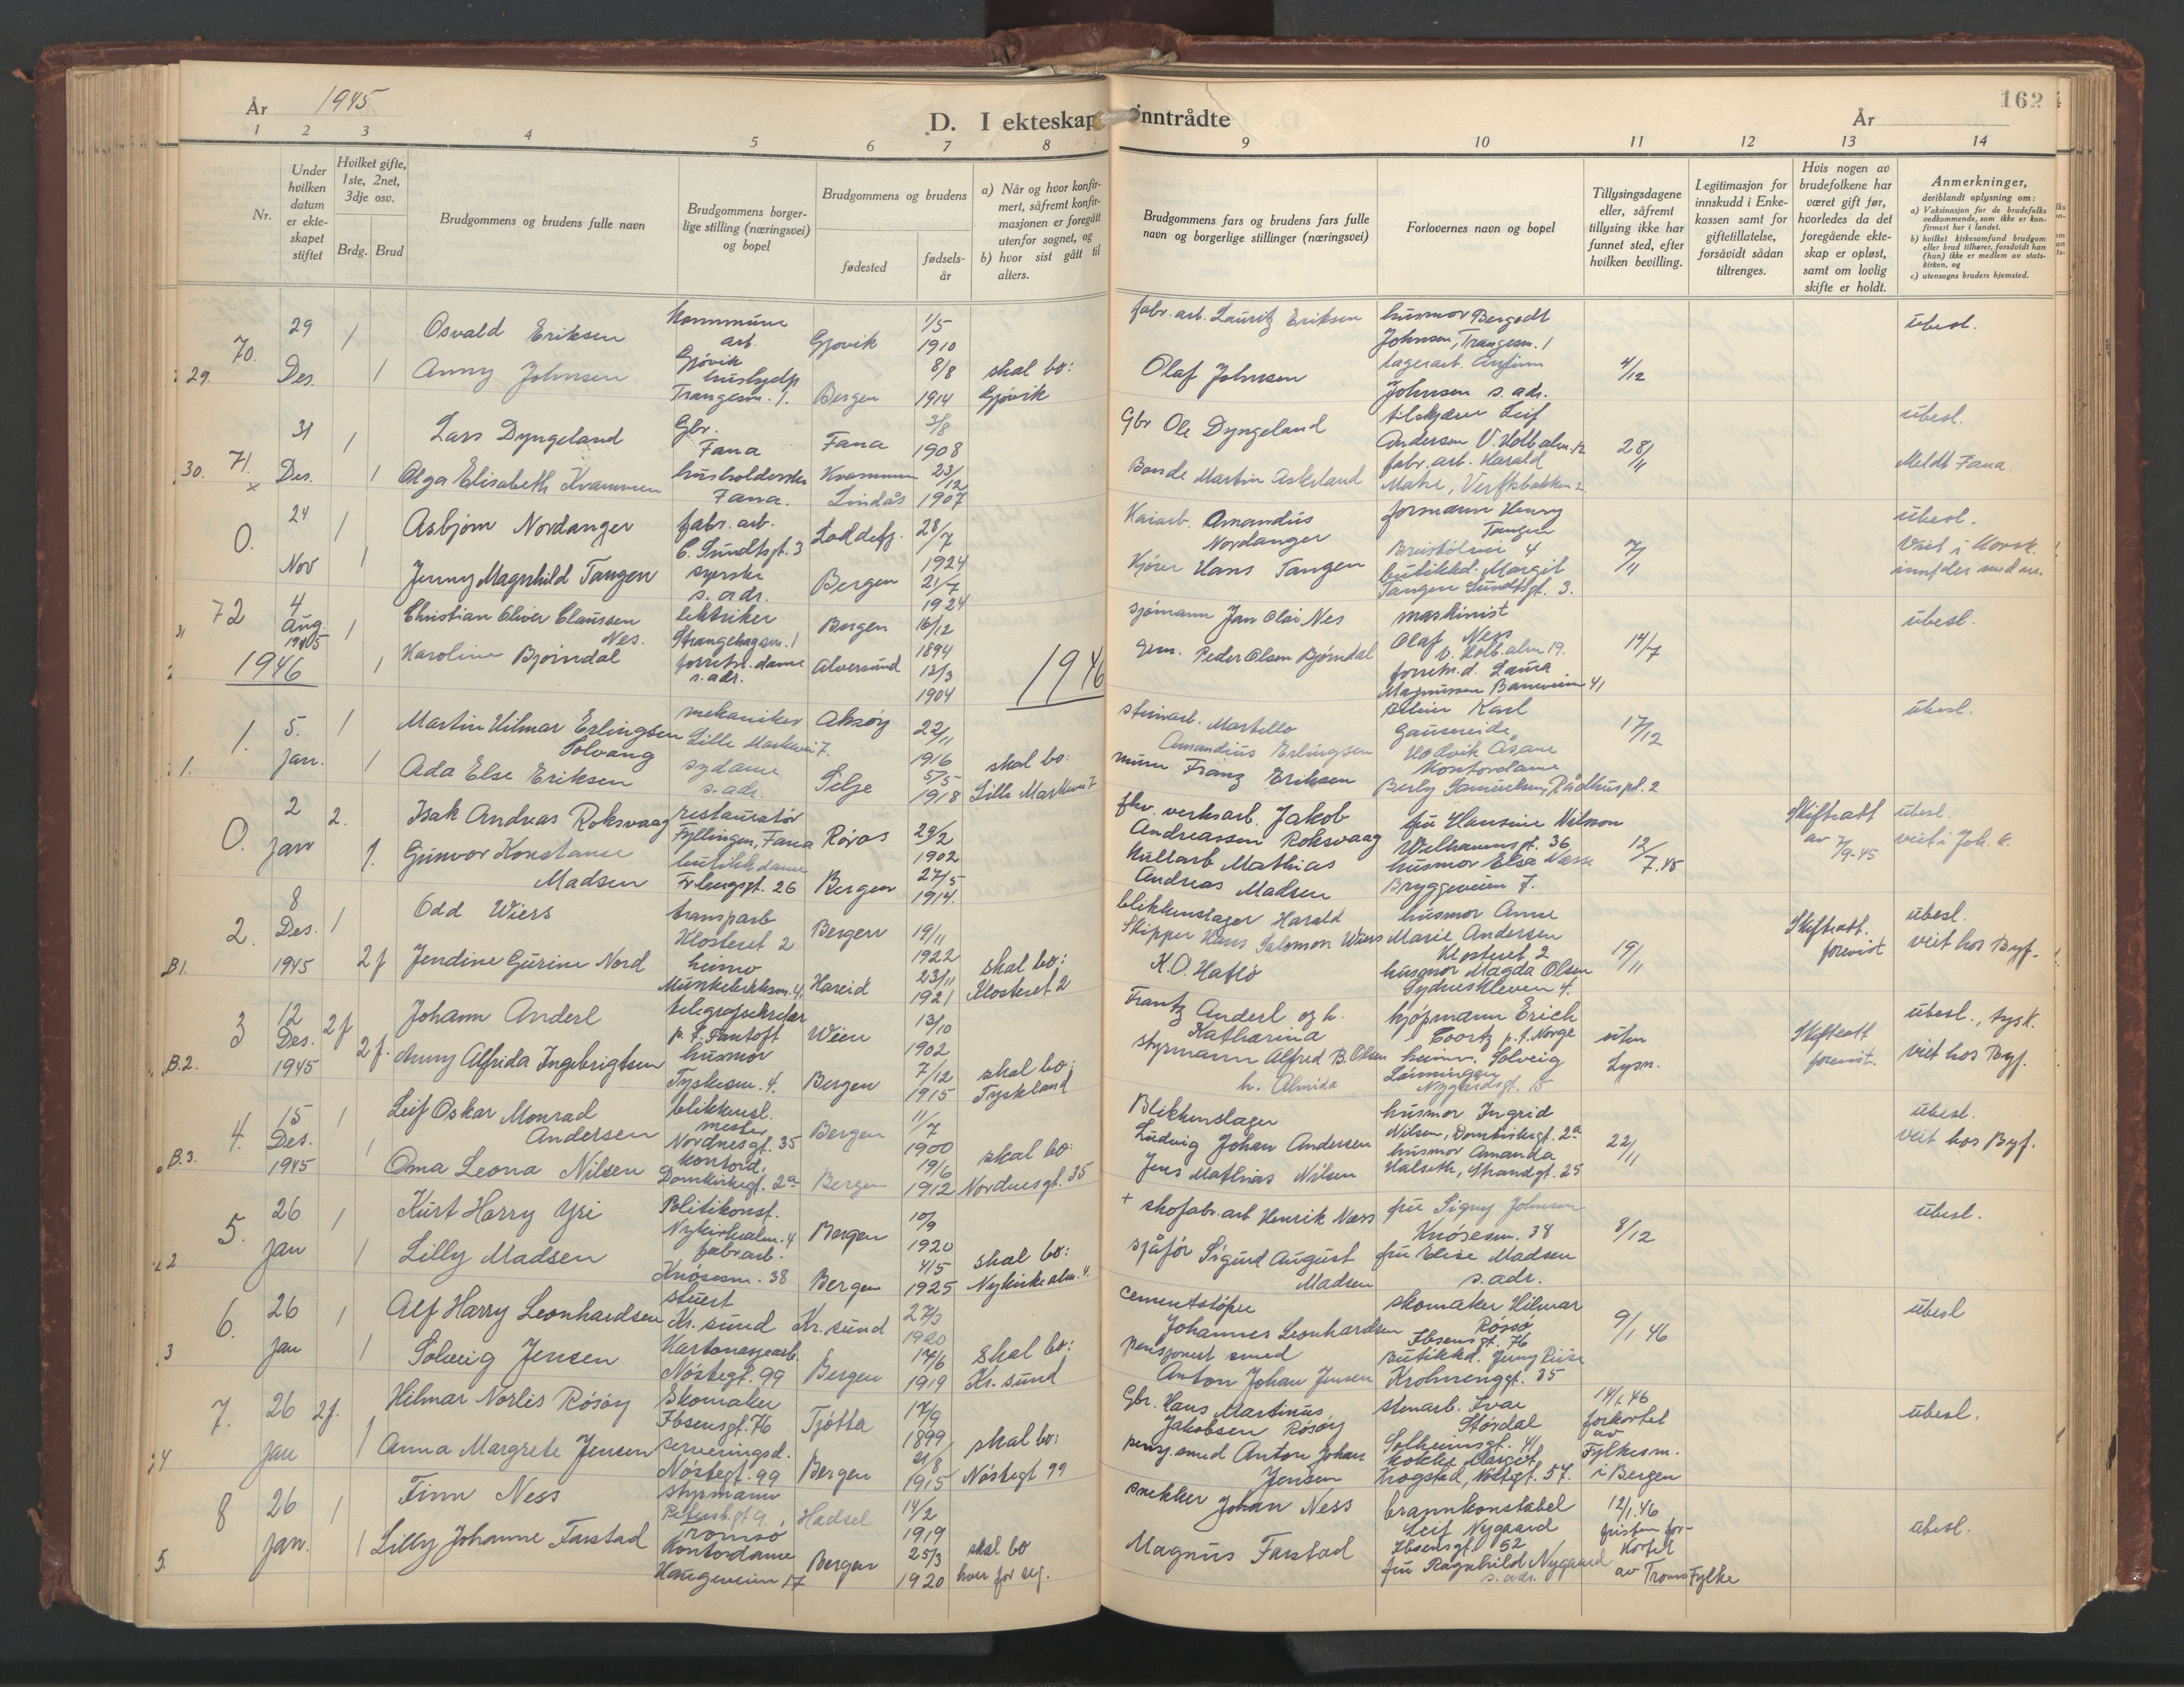 År 1945
D. I ekteskap inntrådte
År
162
1 2 3 4 5 6 7 8 9 10 11 12 13 14
Nr.
Under hvilken datum er ekteskapet stiftet
Hvilket gifte, 1ste, 2net, 3dje osv.
Brdg. Brud
Brudgommens og brudens fulle navn
Brudgommens borgerlige stilling (næringsvei) og bopel
Brudgommens og brudens
fødested
fødselsår
a) Når og hvor konfirmert, såfremt konfirmasjonen er foregått utenfor sognet, og
b) hvor sist gått til alters.
Brudgommens fars og brudens fars fulle navn og borgerlige stillinger (næringsvei)
Forlovernes navn og bopel
Tillysingsdagene eller, såfremt tillysing ikke har funnet sted, efter hvilken bevilling.
Legitimasjon for innskudd i Enkekassen samt for giftetillatelse, forsåvidt sådan tiltrenges.
Hvis nogen av brudefolkene har været gift før, hvorledes da det foregående ekteskap er opløst, samt om lovlig skifte er holdt.
Anmerkninger,
deriblandt oplysning om:
a) Vaksinasjon for de brudefolks vedkommende, som ikke er konfirmert her i landet.
b) hvilket kirkesamfund brudgom eller brud tilhører, forsåvidt han (hun) ikke er medlem av statskirken, og
c) utensogns bruders hjemsted.
29. 70. 29 Des. 1 Osvald Eriksen Kommune arb. Gjøvik Gjøvik 1/5 1910 fabr. arb. Lauritz Eriksen husmor Bergodt Johnsen, Trangesm. 1 übesl.
1 Anny Johnsen hushjelp Trangesm. 1. Bergen 8/8 1914 skal bo: Gjøvik Olaf Johnsen lagerarb. Johnsen s. adr. 4/12
30. 71. x 31 Des. 1 Lars Dyngeland Gbr. Fana Fana 3/8 1908 Gbr Ole Dyngeland tilskjærer Leif Andersen V. Holb.alm. 12 28/11 übesl.
1 Olga Elisabeth Kvammen husholderske Fana. Kvammen Lindås 23/12 1907 Bonde Martin Askeland fabr. arb. Harald Matre, Verftsbakken 2. Meldt Fana
0. 24 Nov 1 Asbjørn Nordanger fabr. arb. C. Sundtsgt. 3 Loddefj. 28/7 1924 Kaiarb. Amandus Nordanger formann Henry Tangen Breistølsvei 4 7/11 übesl. Viet i Korsk.
1 Jenny Magnhild Tangen syerske s. adr. Bergen 21/7 1924 Kjører Hans Tangen butikkd. Margit Tangen Sundtsgt. 3.
31 72 4 Aug. 1945 1 Christian Oliver Claussen Nes. lektriker Strangehagen. 1 Bergen 16/12 1894 sjømann Jan Olai Nes maskinist Olaf Ness v. Holb.alm 19. 14/7 übesl.
1 Karoline Bjørndal forretn. dame s. adr. Alversund 13/3 1904 Peder Olsen Bjørndal forretn. d. Laura Magnussen Baneveien 41
1946
1946
1. 1. 5. jan. 1 Martin Hilmar Erlingsen Solvang mekaniker Lille Markevei 7. Aksøy 22/11 1916 steinarb. Martello Amandius Erlingsen Karl Gausereide Hodvik Åsane 17/12 übesl.
1 Ada Else Eriksen sydame s. adr. Selje 5/5 1918 skal bo: Lille Markevei 7 murer Franz Eriksen Kontordame Berly Samuelsen, Rådhuspl. 2
0. 2 jan 2. Isak Andreas Roksvaag restauratør Fyllingen, Fana Røros 29/2 1902 fhv. verksarb. Jakob Andreassen Roksvaag fru Hansine Nilsson Welhavensgt. 36 12/7.45 Skifteatt av 7/9-45 übesl. viet i Joh. k.
1. Gunvor Konstanse Madsen butikkdame Frlengsgt. 26 Bergen 27/5 1914. Kullarb Mathias Andreas Madsen husmor Elsa Næsse Bryggeveien 7.
B1. 2. 8 Des. 1945 1 Odd Wiers transparb Klosteret 2 Bergen 19/11 1922 blikkenslager Harald Wiers husmor Anne Marie Andersen Klosteret 2 19/11 Skifteatt. forevist übesl. viet hos Byf.
2 f Jendine Gurine Nord heimv Munkebekksm. 4. Hareid 23/11 1921 skal bo: Klosteret 2 Skipper Hans Salomon K.O. Haflo husmor Magda Olsen Sydneskleven 4.
B.2. 3 12 Des. 1945 2 f Johann Anderl telegrafsekretær p. t. Fantoft Wien 13/10 1902 Frantz Anderl og h. Katharina kjøpmann Erich Coortz p. t. Norge uten Lysn. Skifteatt forevist. übesl., tysk. viet hos Byf.
2 f. Anny Alfrida Ingebrigtsen husmor Tyskesm. 4. Bergen 7/12 1915 skal bo: Tyskland styrmann Alfred B. Olsen h. Almida heimv. Solveig Lønningen Nygårdsgt. 15
B.3. 4. 15 Des. 1945 1 Leif Oskar Monrad Andersen blikkensl. mester Nordnesgt. 35 Bergen 11/7 1900 Blikkenslager Ludvig Johan Andersen husmor Ingrid Nilsen, Domkirkegt. 2a 22/11 übesl. viet hos Byf.
1 Oma Leona Nilsen kontord. Domkirkegt. 2a Bergen 19/6 1912 skal bo: Nordnesgt. 35 Jens Mathias Nilsen husmor Amanda Halseth, Strandgt. 25
2 5. 26 jan 1 Kurt Harry Yri Politikonst. Nykirkealm. 4 Bergen 10/9 1920 + skofabr. arb Henrik Næss fru Signy Johnsen Knøsesm. 38 8/12 übesl.
1 Lilly Madsen fabr arb. Knøsesm. 38 Bergen 4/5 1925 skal bo: Nykirkealm. 4. sjåfør Sigurd August Madsen fru Elise Madsen s. adr.
3 6. 26 jan 1 Alf Harry Leonhardsen stuert Kr. sund Kr. sund 27/3 1920 cementstøper Johannes Leonhardsen skomaker Hilmar Røssø Ibsensgt. 76 9/1 46 übesl
1 Solveig Jensen Kartonasjearb. Nøstegt. 99 Bergen 17/6 1919 skal bo: Kr. sund pensjonert smed Anton Johan Jensen Butikkd. Jenny Riise Krohnenggt. 35
4 7. 26 jan 2 f. Hilmar Norlis Røsøy Skomaker Ibsensgt. 76 Tjøtta 17/9 1899 Gbr. Hans Martinus Jakobsen Røsøy stenarb. Ivar Størdal Solheimsgt. 41 14/1.46 forkortet av Fylkesm. i Bergen übesl.
1 Anna Margrete Jensen serveringsd. Nøstegt. 99 Bergen 21/8 1915 skal bo: Nøstegt 99 pensj. smed Anton Johan Jensen kokke Margit Krogstad, Nøstegt. 57.
5. 8 26 jan. 1 Finn Ness styrmann Petersb.gt 9. Tromsø Hadsel 14/2 1919 snekker Johan Ness brannkonstabel Leif Nygaard Ibsensgt. 52 12/1.46 fristen forkortet av Troms Fylke übesl.
1 Lilly Johanne Farstad Kontordame Haugeveien 17 Bergen 25/3 1920 skal bo hver for seg. Magnus Farstad fru Ragnhild Nygaard s. adr.